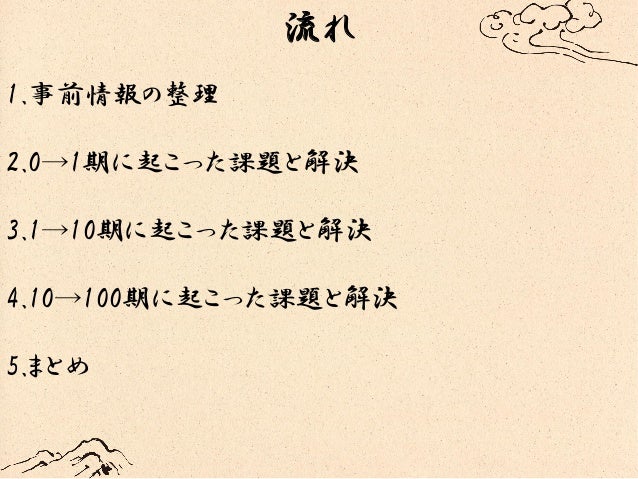 流れ
1.事前情報の整理
2.0→1期に起こった課題と解決
3.1→10期に起こった課題と解決
4.10→100期に起こった課題と解決
5.まとめ